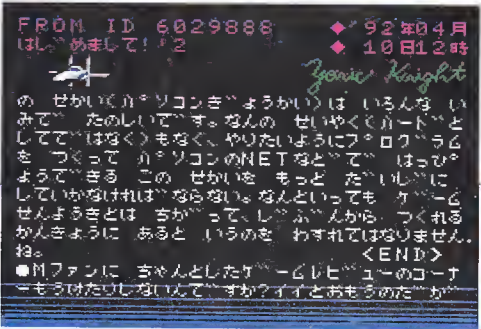 FROM ID 6029888 ◆ 92年04月
はじめまして! #2 ◆ 10日12時
Knight
の せかい<パソコンぎょうかい>は いろんな い
みで たのしいです。なんの せいやく<ハードと
してではなく>もなく、やりたいようにプログラム
を つくって パソコンのNETなどで はっぴ
ょうできる この せかいを もっと だいじに
していかなければ ならない。なんといっても ゲーム
せんようきとは ちがって、じぶんから つくれる
かんきょうに あると いうのを わすれてはなりません.
ね。 <END>
●Mファンに ちゃんとしたゲームレビューのコーナ
ーもうけたりしないんですか?イイとおもうのだが